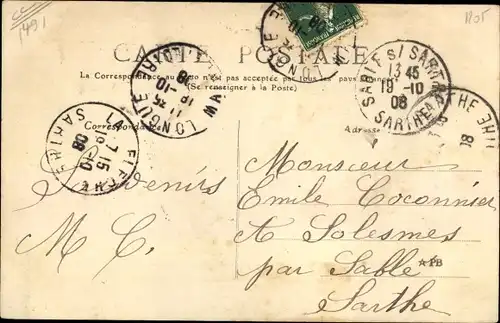 CC
1491
CARTE POSTALE
La Correspondance au recto n'est pas acceptée par tous les pays étrangers
(Se renseigner à la Poste)
LONGUÉ
MAINE-ET-LOIRE
18-10
08
SABLÉ S/ SARTHE
13 45
19-10
08
SARTHE
LA FLÈCHE
7 15
19-10
08
SARTHE
Correspondance
Adresse
Souvenirs
M. C.
Monsieur
Emile Coconnier
A Solesmes
par Sablé
★FB
Sarthe